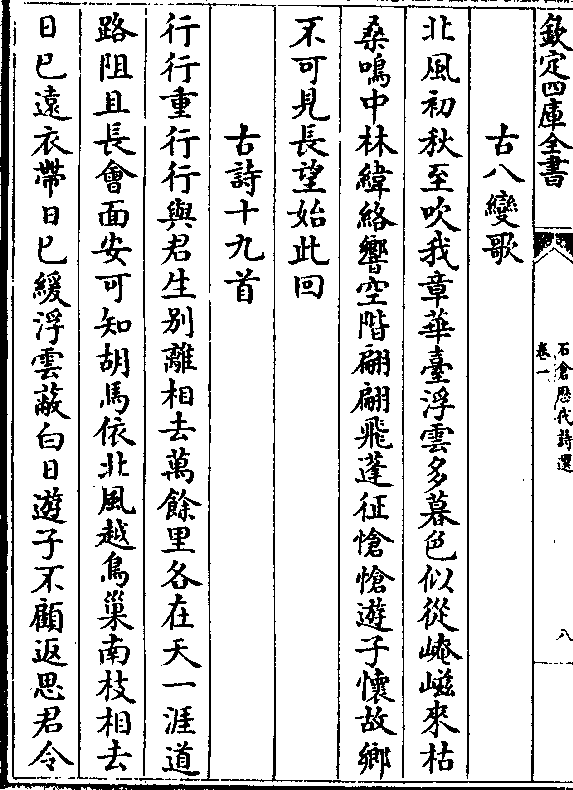 欽定四庫全書
石倉歷代詩選
卷一
八
古八變歌
北風初秋至吹我章華臺浮雲多暮色似從崦嵫來枯
桑鳴中林緯絡響空階翩翩飛蓬征愴愴遊子懷故鄉
不可見長望始此回
古詩十九首
行行重行行與君生別離相去萬餘里各在天一涯道
路阻且長會面安可知胡馬依北風越鳥巢南枝相去
日已遠衣帶日已緩浮雲蔽白日遊子不顧返思君令